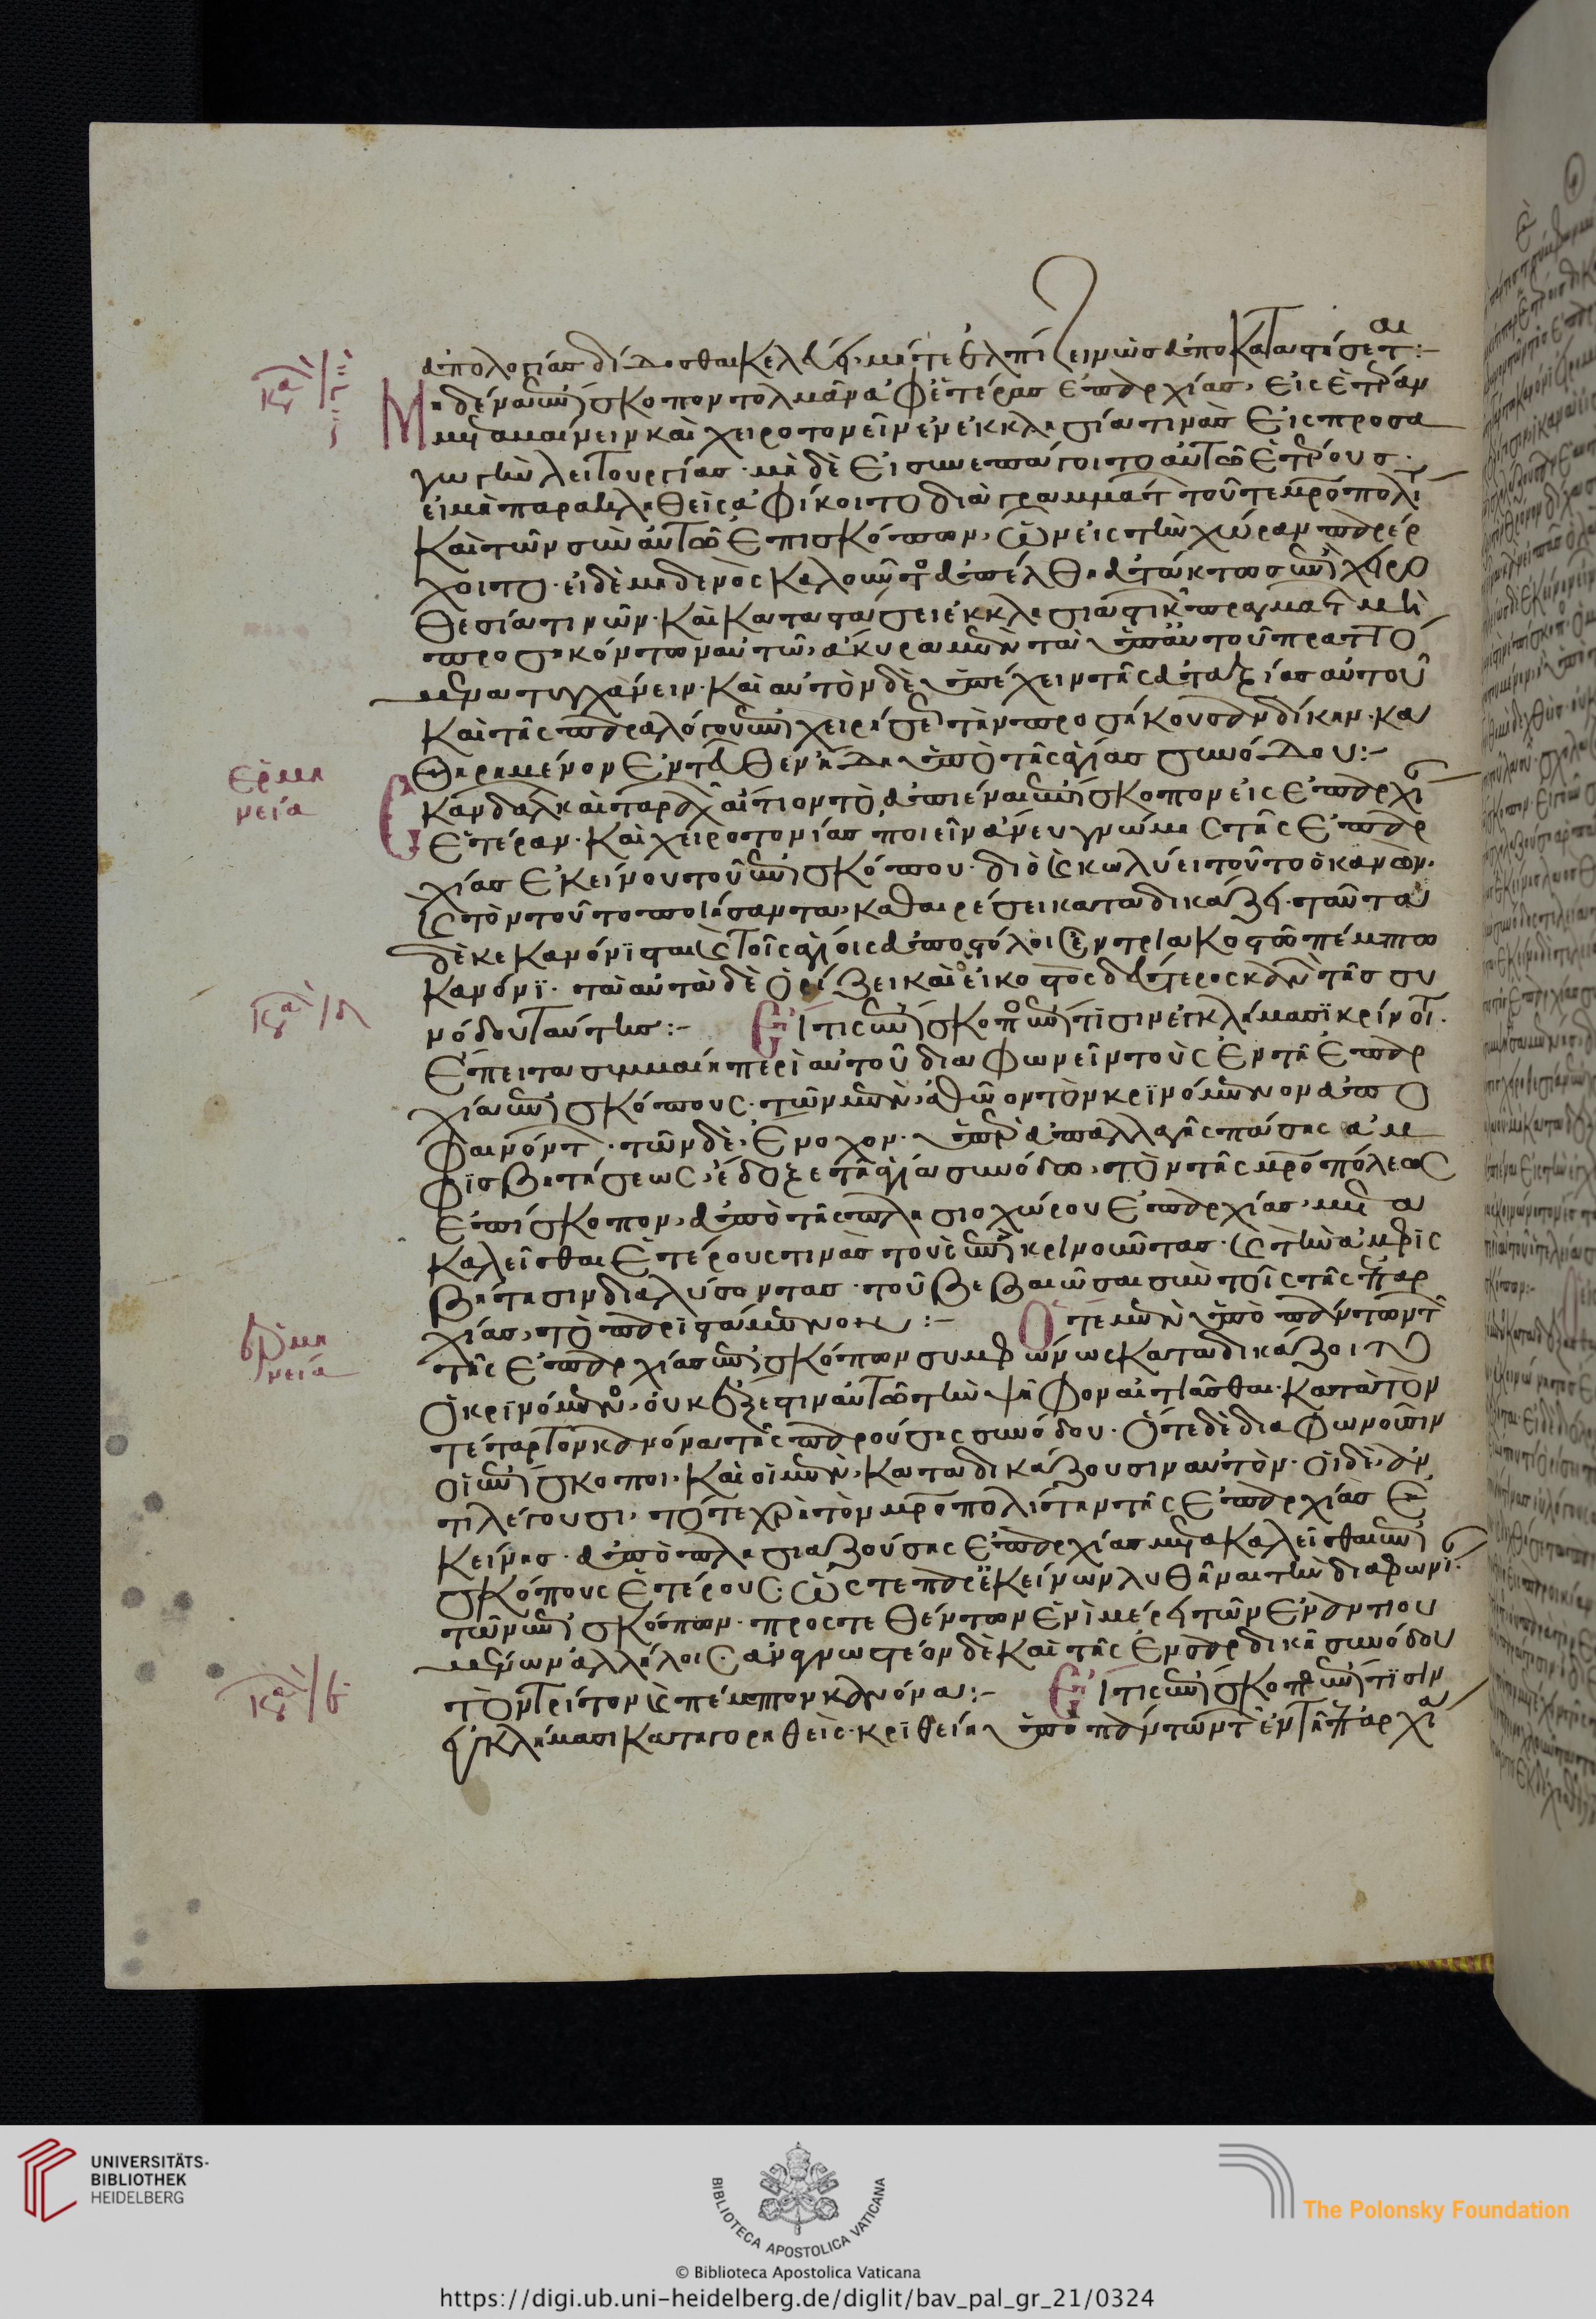 ἀπολογίας δίδοσθαι κελεύει, μήτε ἐλπίζειν ὡς ἀποκαταστήσεται:-
Μηδένα ἐπίσκοπον τολμᾶν ἀφ' ἑτέρας ἐπαρχίας, εἰς ἑτέραν
μεταβαίνειν καὶ χειροτονεῖν ἐν ἐκκλησίᾳ τινὰς εἰς προσα
γωγὴν λειτουργίας· μηδὲ εἰ συνεπάγοιτο αὐτῷ ἑτέρους·
εἰ μὴ παρακληθεὶς ἀφίκοιτο διὰ γραμμάτων τοῦ τε μητροπολίτου
καὶ τῶν σὺν αὐτῷ ἐπισκόπων, ὧν εἰς τὴν χώραν παρέρ
χοιτο· εἰ δὲ μηδενὸς καλοῦντος ἀπέλθῃ ἀτάκτως ἐπὶ χειρο
θεσίᾳ τινῶν· καὶ καταστάσει ἐκκλησιαστικῶν πραγμάτων μὴ
προσηκόντων αὐτῶ, ἄκυρα μὲν τὰ ὑπ' αὐτοῦ πραττό
μενα τυγχάνειν· καὶ αὐτὸν δὲ ὑπέχειν τῆς ἀταξίας αὐτοῦ
καὶ τῆς παραλόγου ἐπιχειρήσεως τὴν προσήκουσαν δίκην· κα
θηρημένον ἐντεῦθεν ἤδη ὑπὸ τῆς ἁγίας συνόδου:-
ἑρμηνεία
Σκάνδαλα καὶ ταραχῆς αἴτιον τὸ ἀπιέναι ἐπίσκοπον εἰς ἐπαρχίαν
ἑτέραν· καὶ χειροτονίας ποιεῖν ἄνευ γνώμης τῆς ἐπαρ
χίας ἐκείνου τοῦ ἐπισκόπου· διὸ καὶ κωλύει τοῦτο ὁ κανών·
καὶ τὸν τοῦτο ποιήσαντα, καθαιρέσει καταδικάζει· ταῦτα
δὲ κεκανόνισται καὶ τοῖς ἁγίοις ἀποστόλοις ἐν τριακοστῷ πέμπτῳ
κανόνι· τὰ αὐτὰ δὲ ὁρίζει καὶ εἰκοστὸς δεύτερος κανὼν τῆς συ
νόδου ταύτης:- Εἴ τις ἐπίσκοπος ἐπί τισιν ἐγκλήμασι κρίνοιτο·
ἔπειτα συμβαίη περὶ αὐτοῦ διαφωνεῖν τοὺς ἐν τῇ ἐπαρ
χίᾳ ἐπισκόπους· τῶν μὲν, ἀθῶον τὸν κρινόμενον ἀπο
φαινόντων· τῶν δὲ, ἔνοχον· ὑπὲρ ἀπαλλαγῆς πάσης ἀμ
φισβητήσεως, ἔδοξε τῇ ἁγίᾳ συνόδῳ, τὸν τῆς μητροπόλεως
ἐπίσκοπον, ἀπὸ τῆς πλησιοχώρου ἐπαρχίας, μετα
καλεῖσθαι ἑτέρους τινὰς τοὺς ἐπικρινοῦντας· καὶ τὴν ἀμφισ
βήτησιν διαλύσοντας· τοῦ βεβαιῶσαι σὺν τοῖς τῆς ἐπαρ
χίας, τὸ παριστάμενον:- Ὅτε μὲν ὑπὸ πάντων τῶν
τῆς ἐπαρχίας ἐπισκόπων συμφώνως καταδικάζοιτο
ὁ κρινόμενος, οὐκ ἔξεστιν αὐτῷ τὴν ψῆφον αἰτιᾶσθαι· κατὰ τὸν
τέταρτον κανόνα τῆς παρούσης συνόδου· ὅτε δὲ διαφωνοῦσιν
οἱ ἐπίσκοποι, καὶ οἱ μὲν, καταδικάζουσιν αὐτὸν· οἱ δὲ, ἀν
τιλέγουσι, τότε χρὴ τὸν μητροπολίτην τῆς ἐπαρχίας ἐ
κείνης· ἀπὸ πλησιαζούσης ἐπαρχίας μετακαλεῖσθαι ἐπι
σκόπους ἑτέρους· ὥστε παρ' ἐκείνων λυθῆναι τὴν διαφωνίαν
τῶν ἐπισκόπων· προστεθέντων ἑνὶ μέρει τῶν ἐναντιου
μένων ἀλλήλοις· ἀναγνωστέον δὲ καὶ τῆς ἐν σαρδικῇ συνόδου
τὸν τρίτον καὶ πέμπτον κανόνα:- Εἴ τις ἐπίσκοπος ἐπί τισιν
ἐγκλήμασι κατηγορηθεὶς· κριθείη ὑπὸ πάντων τῶν ἐν τῇ ἐπαρχίᾳ
ἑρμηνεία
UNIVERSITÄTS-
BIBLIOTHEK
HEIDELBERG
BIBLIOTECA APOSTOLICA VATICANA
The Polonsky Foundation
© Biblioteca Apostolica Vaticana
https://digi.ub.uni-heidelberg.de/diglit/bav_pal_gr_21/0324